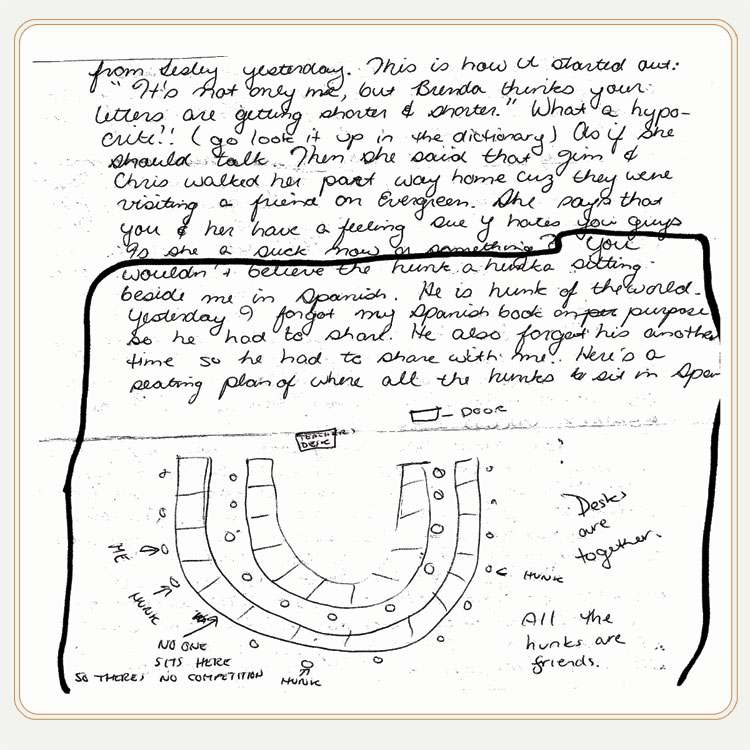 from Lesley yesterday. This is how it started out:
"It's not only me, but Brenda thinks your
letters are getting shorter & shorter." What a hypo-
crite!! (go look it up in the dictionary) As if she
should talk. Then she said that Jim &
Chris walked her part way home cuz they were
visiting a friend on Evergreen. She says that
you & her have a feeling Sue Y hates you guys
Is she a suck now or something? You
wouldn't believe the hunk a hunka sitting
beside me in Spanish. He is hunk of the world.
Yesterday I forgot my Spanish book on purpose
so he had to share. He also forgot his another
time so he had to share with me. Here's a
seating plan of where all the hunks sit in Span
DOOR
TEACHERS
DESK
Desks
are
together.
ME
HUNK
HUNK
NO ONE
SITS HERE
SO THERES NO COMPETITION
HUNK
All the
hunks are
friends.